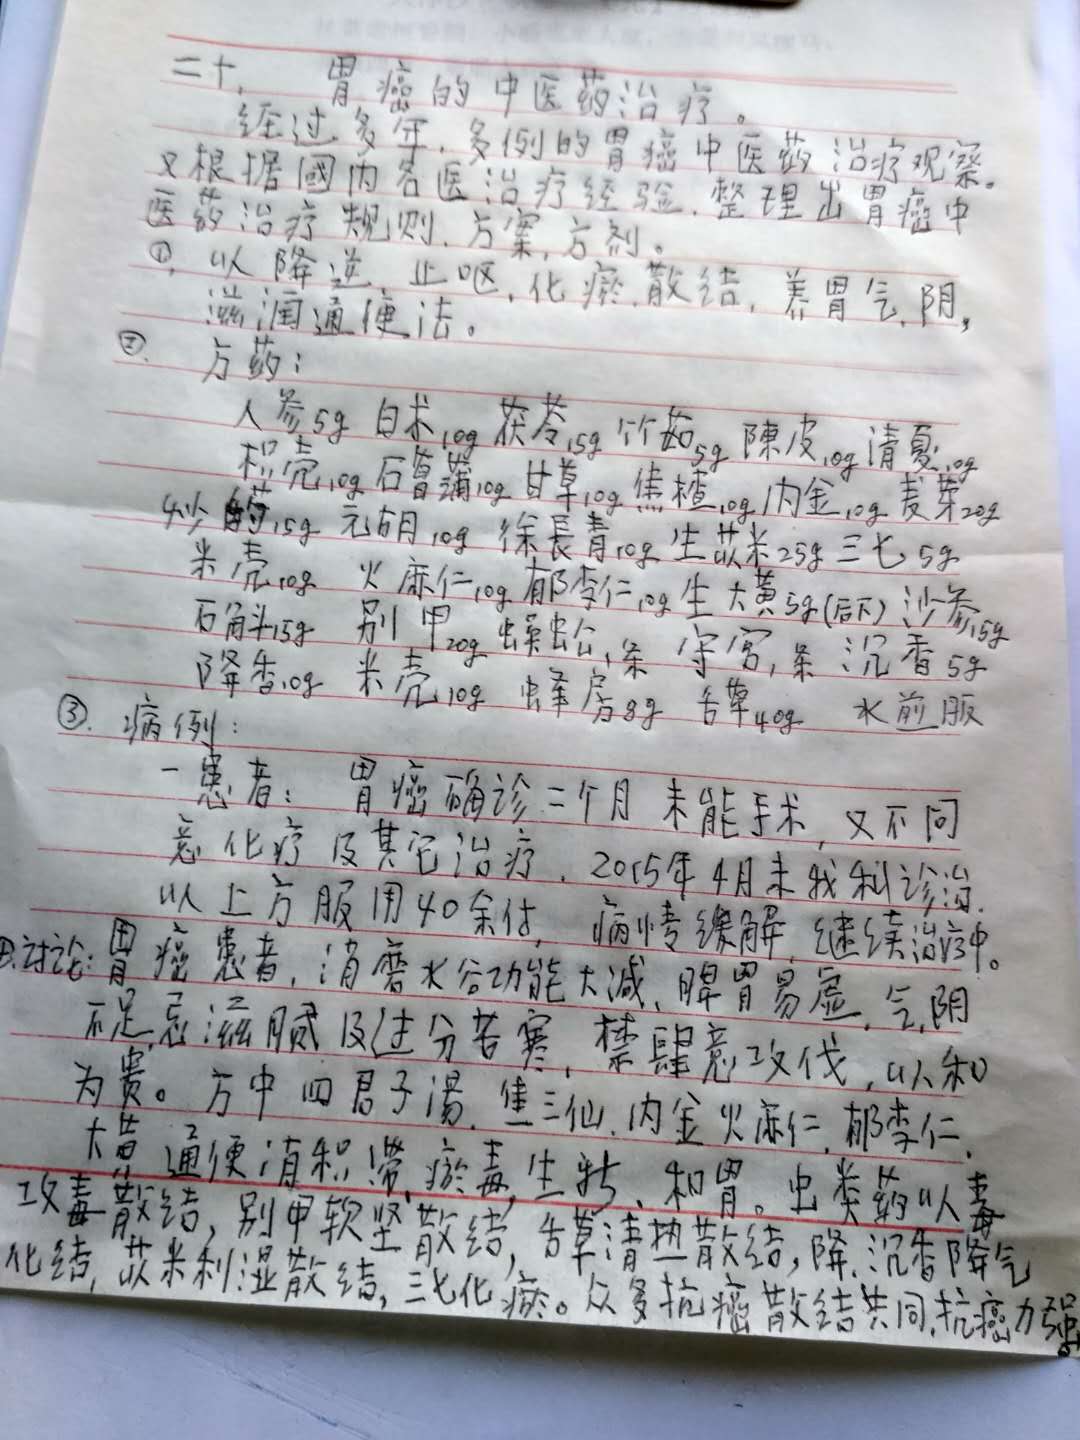 二十、 胃癌的中医药治疗。
经过多年,多例的胃癌中医药治疗观察。
又根据國内名医治疗经验,整理出胃癌中
医药治疗规则,方案,方剂。
①,以降逆,止呕,化瘀,散结,养胃气,阴,
滋润通便法。
②. 方药:
人参5g 白术10g 茯苓15g 竹茹5g 陳皮10g 清夏10g
枳壳10g 石菖蒲10g 甘草10g 焦楂10g 内金10g 麦芽20g
炒 15g 元胡10g 徐長青10g 生苡米25g 三七5g
米壳10g 火麻仁10g 郁李仁10g 生大黄5g(后下) 沙参15g
石角斗15g 别甲20g 蜈蚣1条 守宫1条 沉香5g
降香10g 米壳10g 蜂房8g 舌草40g 水煎服
③. 病例:
一患者: 胃癌确诊二个月未能手术,又不同
意化疗及其它治疗,2015年4月来我科诊治.
以上方服用40余付,病情缓解,继续治疗中。
④.讨论:胃癌患者,消磨水谷功能大减,脾胃易虚,气,阴
不足,忌滋腻及过分苦寒,禁肆意攻伐,以和
为贵。方中四君子湯,焦三仙,内金火麻仁,郁李仁,
大黄通便消积滞,瘀毒,生新,和胃。虫类药以毒
攻毒散结,别甲软坚散结,舌草清热散结,降,沉香降气
化结,苡米利湿散结,三七化瘀。众多抗癌散结共同,抗癌力强。